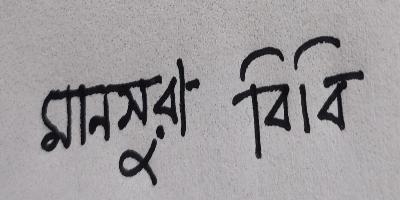 মানসুরা বিবি